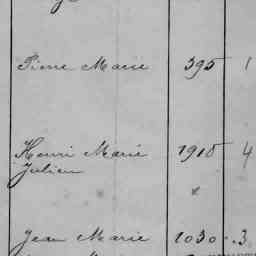 Pierre Marie 395 1
Henri Marie 1918 4
Julien
Jean Marie 1030 3